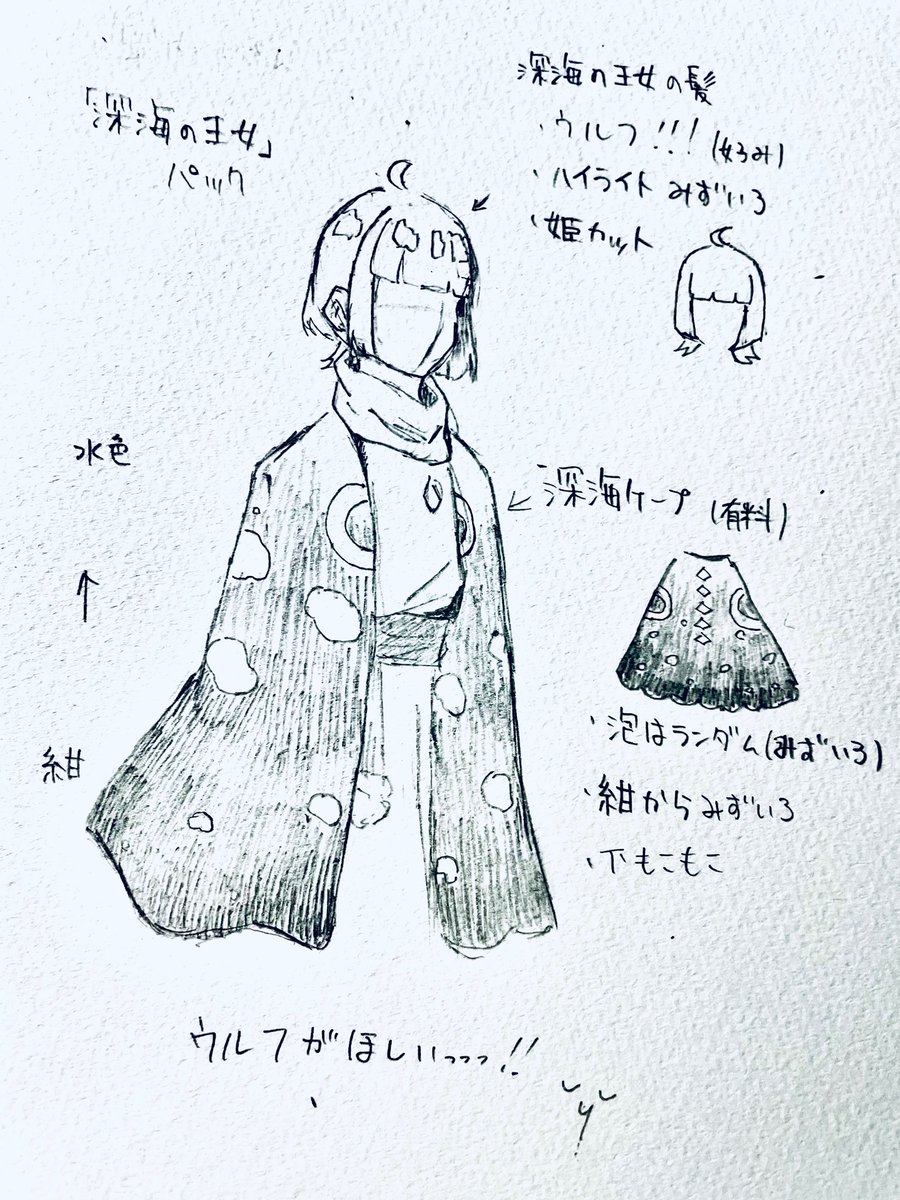 「深海の王女」
パック
深海の王女の髪
・ウルフ!!!(好み)
・ハイライト みずいろ
・姫カット
水色
↑
紺
深海ケープ(有料)
・泡はランダム(みずいろ)
・紺からみずいろ
・下もこもこ
ウルフがほしいっっっ!!